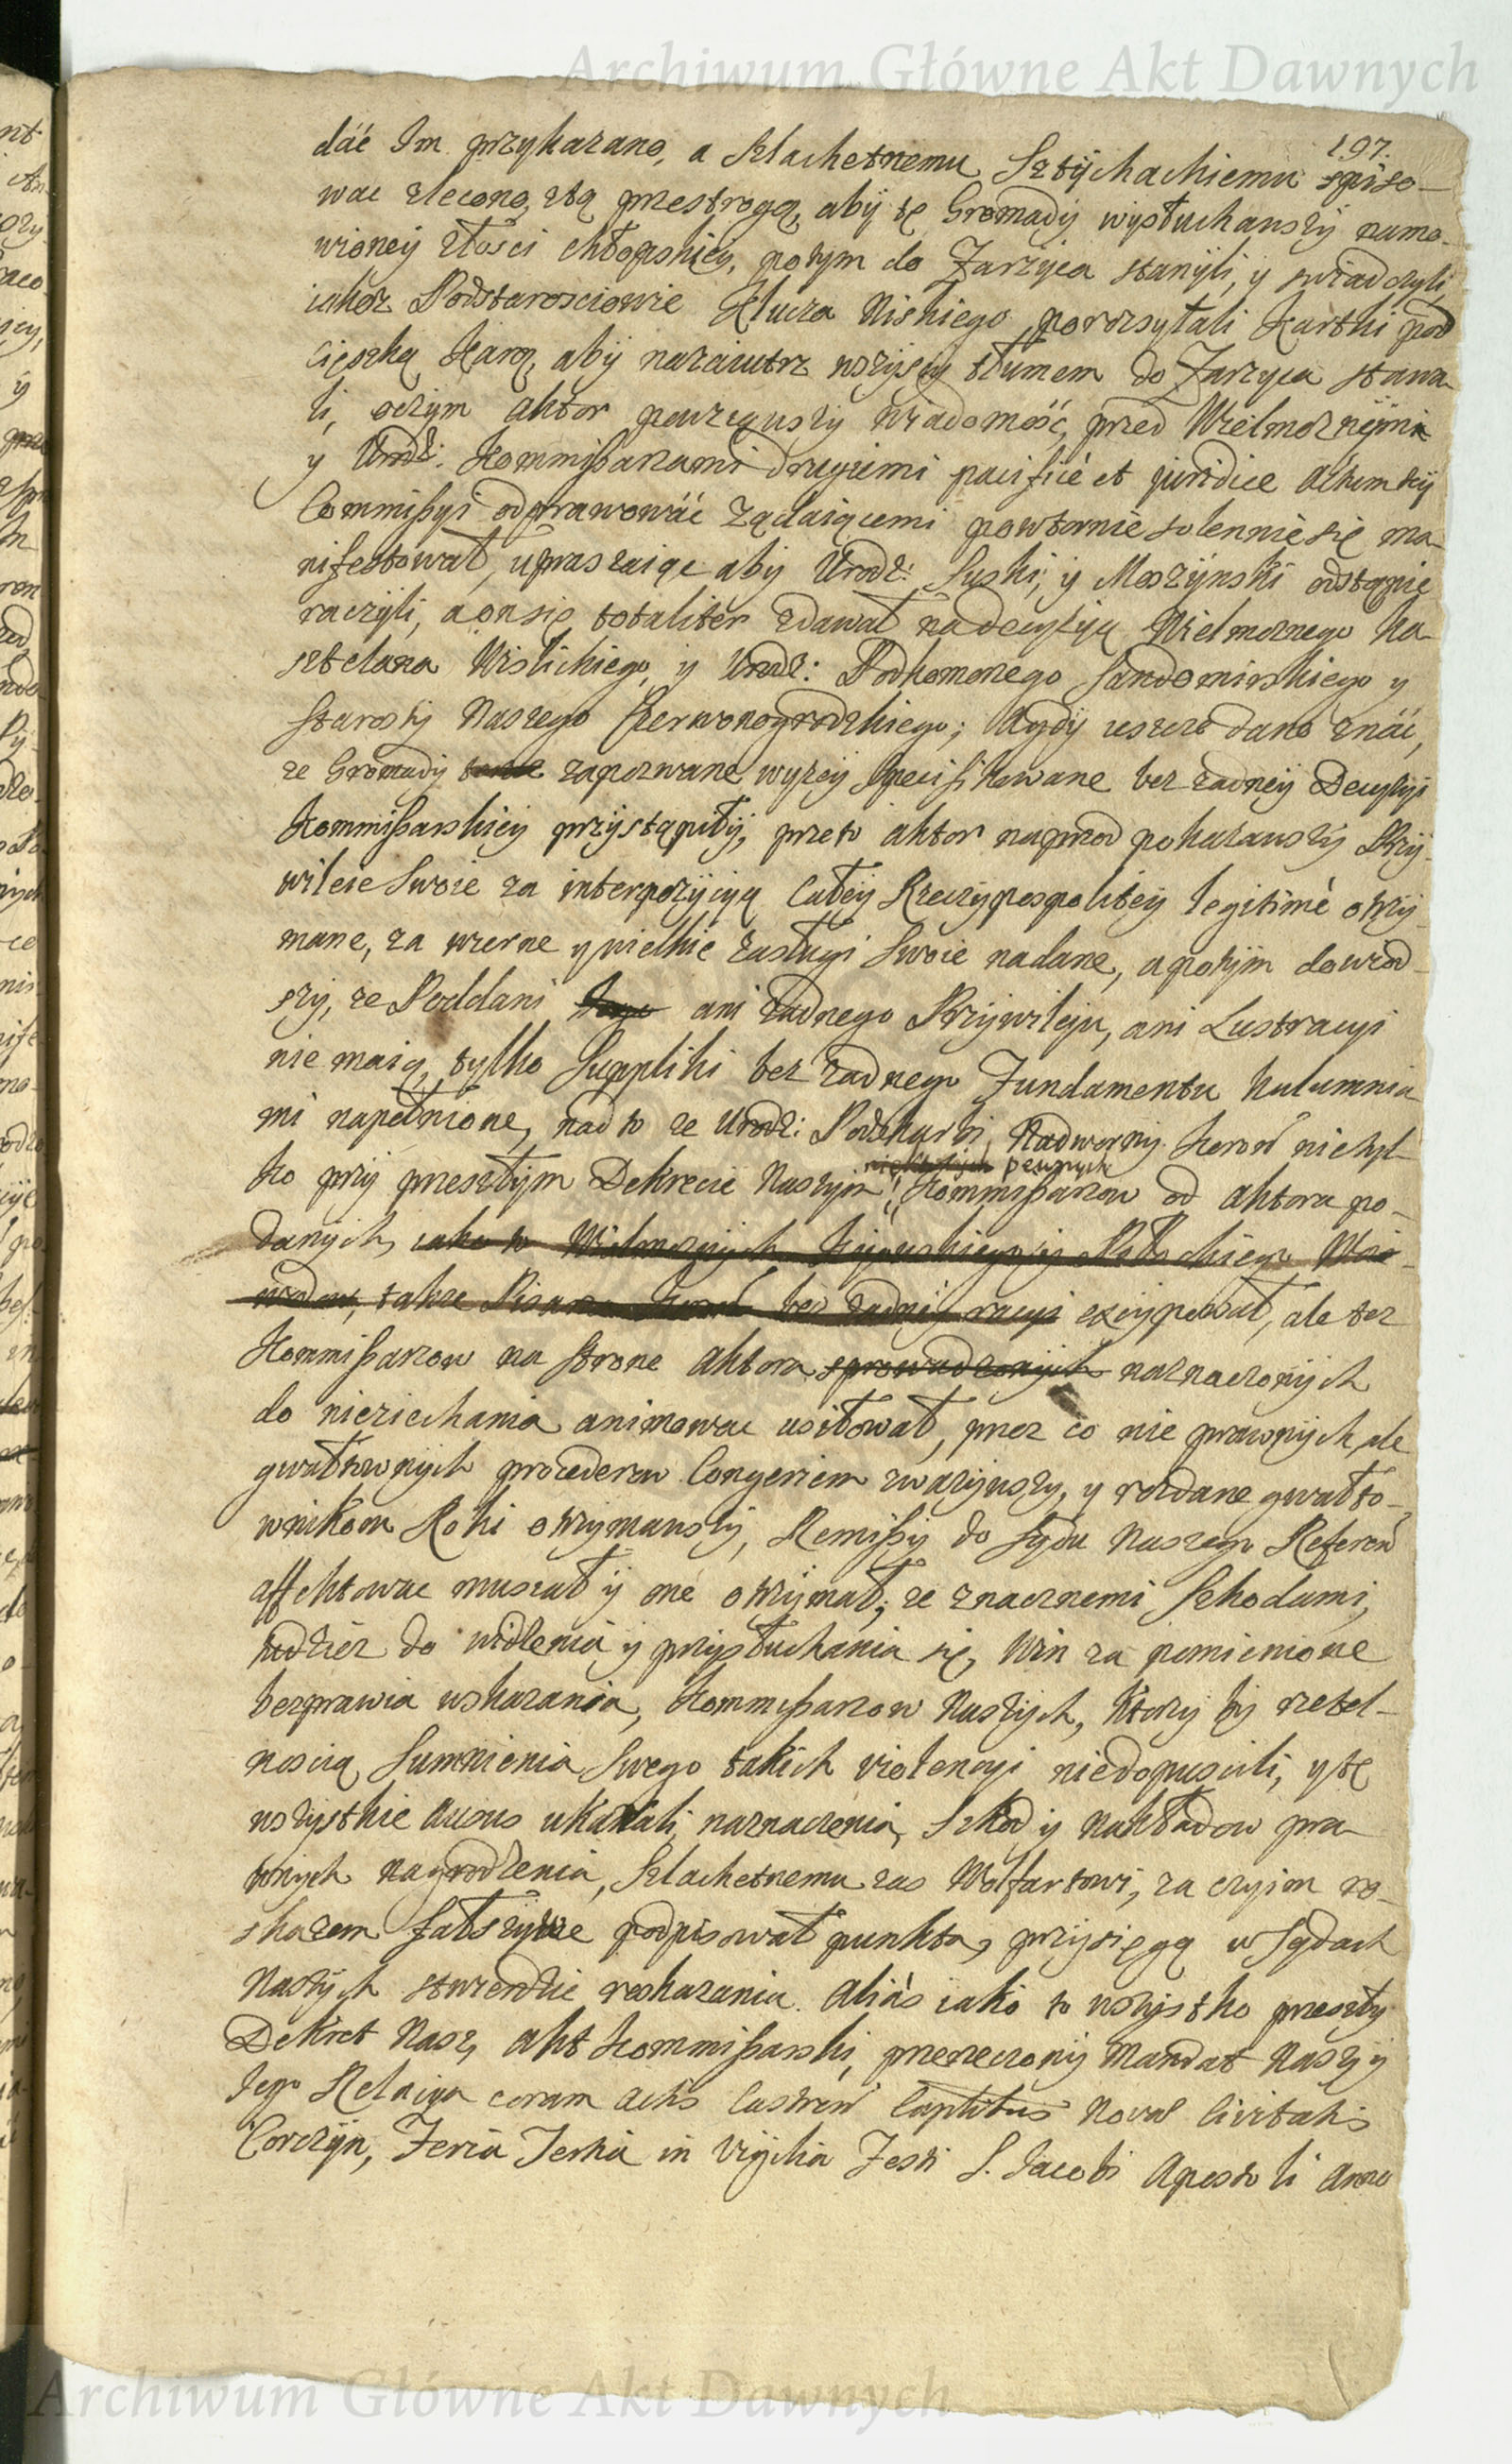 Archiwum Główne Akt Dawnych
197.
dáć Im przykazano, a Szlachetnemu Sztychachiemu spiso-
wac zlecono, ztą przestrogą, abÿ tę Gromadÿ wysłuchawszÿ namo-
wioneÿ złosci chłopskiey, potym do Zarzyca stanÿli, y swiadczyli
iakoz Podstarosciowie Klucza Niskiego porozsyłali Kartki pod
cięszką Karą, abÿ nazaiutrz wszÿscy tłumem do Zarzyca stawa-
li, oczym aktor powziąwszÿ wiadomość, przed Wielmoznÿmi
y Urodz: Kommissarzami drugiemi pacificè et juridice Actum teÿ
Commissÿi odprawowáć ządaiącemi powtornie solennie się ma-
nifestował, upraszaiąc abÿ Urodz: Suski, y Moszÿnski odstąpic
raczÿli, a on się totaliter zdawał na decyzÿą Wielmoznego Ka-
sztelana Wislickiego, ÿ Urodz: Podkomorzego Sandomirskiego y
Starostÿ Naszego Czerwonogrodzkiego; Agdÿ ieszcze dano znáć,
ze Gromadÿ zapozwane, wyzeÿ specifikowane bez zadneÿ Decyzÿi
Kommissarskieÿ przÿstąpiłÿ, przeto aktor naprzod pokazawszÿ Przÿ-
wileie Swoie za interpozÿcÿą Całeÿ Rzeczÿpospoliteÿ legitimè otrzÿ-
mane, za wierne y wielkie zasługi Swoie nadane, a potÿm dowod-
szÿ, ze Poddani ani zadnego Przÿwileju, ani Lustracyi
nie maią, tylko Suppliki bez zadnego Fundamentu kalumnia-
mi napełnione, nad to ze Urodz: Podskarbi Nadwornÿ Koron nietyl-
niektorych pewnych
ko przÿ przeszłÿm Dekrecie Naszÿm Kommissarzow od aktora po-
danych, iako to Wielmoznÿch Kijowskiego ÿ Woie-
wodow, takze Pisarza Koron bez zadnÿ racyi excÿpował, ale tez
Kommissarzow na strone aktora sprowadzonÿch naznaczonÿch
do nieziechania animowac usiłował, przez co nie prawnÿch, ale
gwałtownÿch procederow Congeriem zwazÿwszy, y rozdane gwałto-
wnikom Roki otrzymawszÿ, Remissÿ do Sądu Naszego Referen
affektowac musiał ÿ one otrzÿmał; ze znacznemi Szkodami,
tudziez do widzenia y przysłuchania się, Win za pomienione
bezprawia wskazania, Kommissarzow Naszÿch, ktorzÿ bÿ rzetel-
noscią Sumnienia Swego takich violencyi niedopuscili, y tę
wszystkie Ausus ukarali, naznaczenia, Szkod ÿ Nakładow pra-
wnÿch nagrodzenia, Szlachetnemu zas Wolfartowi, za czyim ro-
skazem fałszÿwie podpisował punkta, przysięgą w Sądach
Naszÿch stwierdzic roskazania. Aliàs iako to wszystko przeszłÿ
Dekret Nasz, akt Kommissarski, przerzeczonÿ Mandat Nasz ÿ
Iego Relacya coram actis Castren Capitibus Novae Civitatis
Corczÿn, Feria Tertia in Vigilia Festi S. Jacobi Apostoli Anno
Archiwum Główne Akt Dawnych